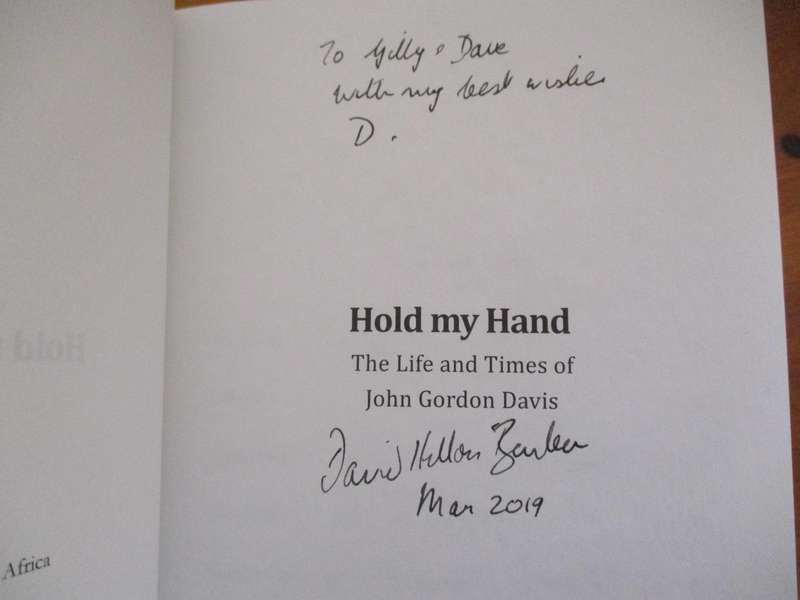 To Gilly & Dave
with my best wishes
D.
Hold my Hand
The Life and Times of
John Gordon Davis
David Hilton Barber
Mar 2019
Hold
Africa